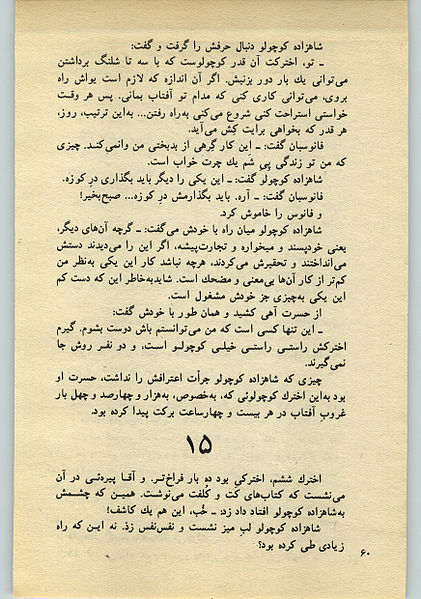 شاهزاده کوچولو دنبال حرفش را گرفت و گفت:
ـ تو، اخترکت آن قدر کوچولوست که با سه تا شلنگ برداشتن
می‌توانی یك بار دور بزنیش. اگر آن اندازه که لازم است یواش راه
بروی، می‌توانی کاری کنی که مدام تو آفتاب بمانی. پس هر وقت
خواستی استراحت کنی شروع می‌کنی به‌راه رفتن... به‌این ترتیب، روز،
هر قدر که بخواهی برایت کِش می‌آید.
فانوسبان گفت: ـ این کار گِرهی از بدبختی من وانمی‌کند. چیزی
که من تو زندگی پیِ شم یك چرت خواب است.
شاهزاده کوچولو گفت: ـ این یکی را دیگر باید بگذاری درِ کوزه.
فانوسبان گفت: ـ آره. باید بگذارمش درِ کوزه... صبح‌بخیر!
و فانوس را خاموش کرد.
شاهزاده کوچولو میان راه با خودش می‌گفت: ـ گرچه آن‌های دیگر،
یعنی خودپسند و میخواره و تجارت‌پیشه، اگر این را می‌دیدند دستش
می‌انداختند و تحقیرش می‌کردند، هرچه نباشد کار این یکی به‌نظر من
کم‌تر از کار آن‌ها بی‌معنی و مضحك است. شاید‌به‌خاطر این که دست کم
این یکی به‌چیزی جز خودش مشغول است.
از حسرت آهی کشید و همان طور با خودش گفت:
ـ این تنها کسی است که من می‌توانستم باش دوست بشوم. گیرم
اخترکش راستـی راستـی خیلـی کوچولـو اسـت، و دو نفـر روش جا
نمی‌گیرند.
چیزی که شاهزاده کوچولو جرأت اعترافش را نداشت، حسرت او
بود به‌این اخترك کوچولوئی که، به‌خصوص، به‌هزار و چهارصد و چهل بار
غروبِ آفتاب در هر بیست و چهارساعت برکت پیدا کرده بود.
۱۵
اخترك ششم، اخترکی بود ده بار فراخ‌تـر. و آقـا پیره‌ئی در آن
می‌نشست که کتاب‌های کَت و کُلفت می‌نوشـت. همیـن که چشـمش
به‌شاهزاده کوچولو افتاد داد زد: ـ خُب، این هم یك کاشف!
شاهزاده کوچولو لبِ میز نشست و نفس‌نفس زد. نه ایـن که راه
زیادی طی کرده بود؟
۶۰